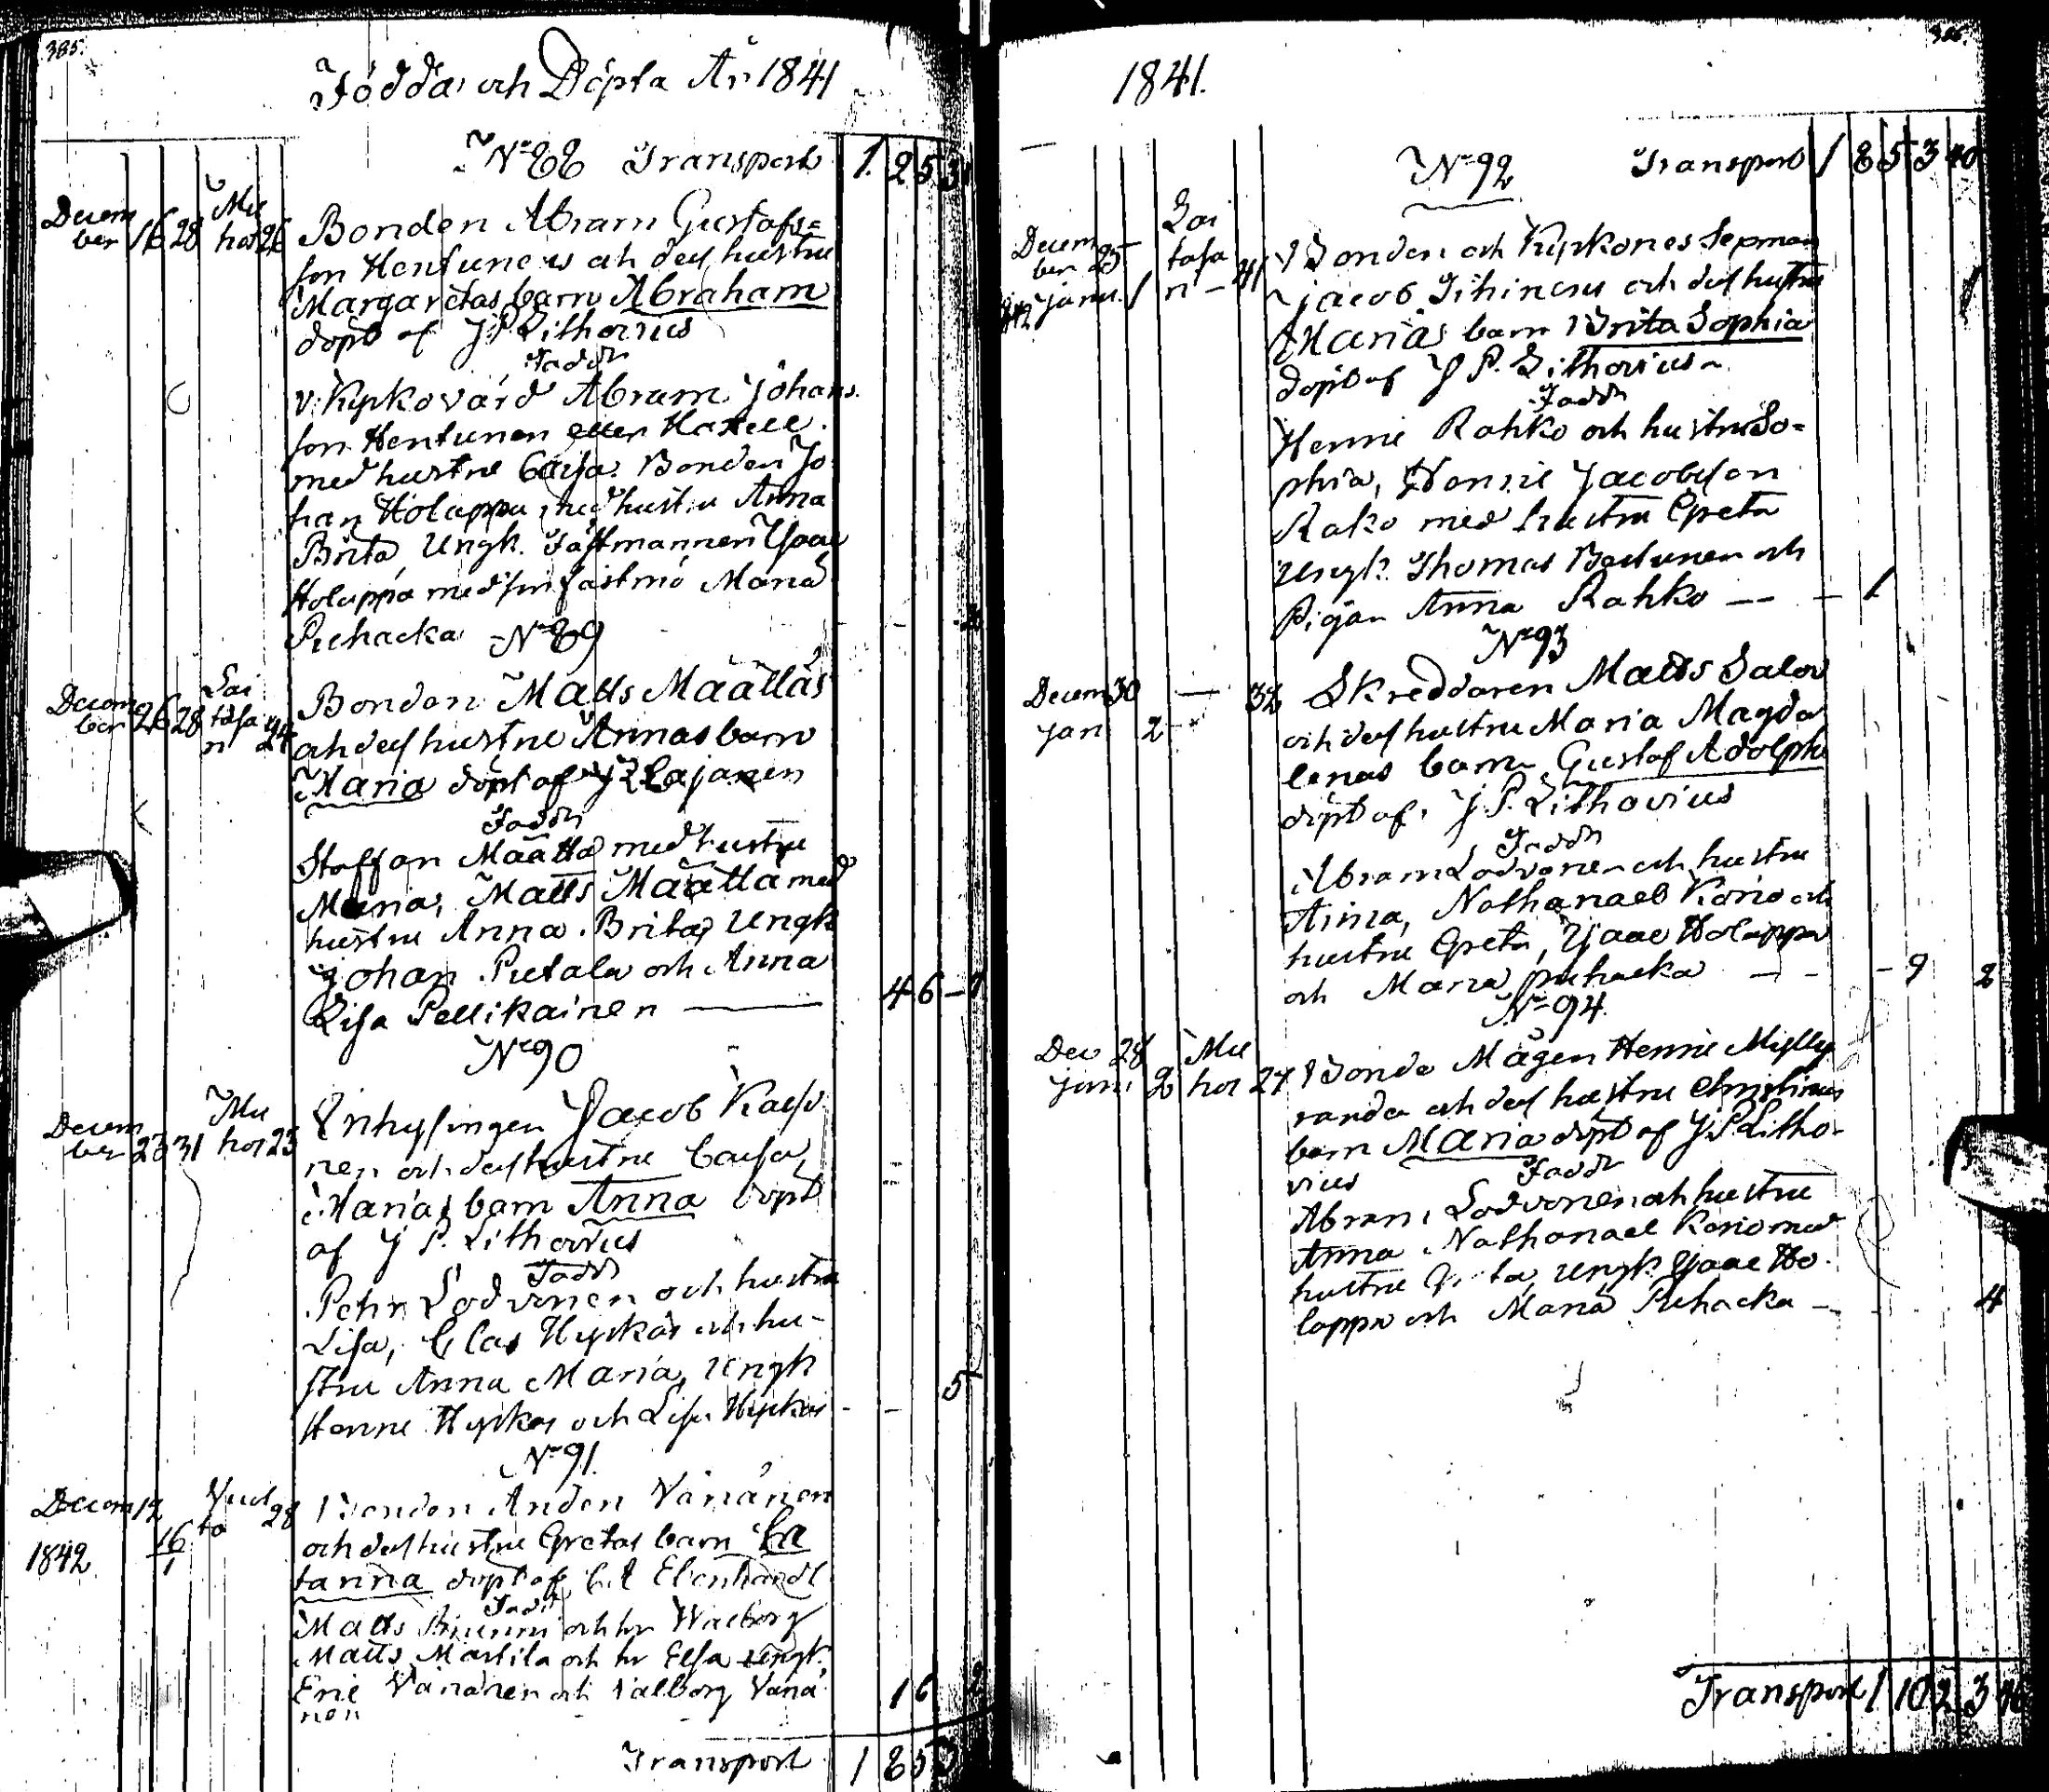 385.
Födda och Döpta År 1841
No 88 Transport 1. 25 3
Decem
ber 16 28 Mu
hos 26
Bonden Abram Gustafs=
son Hentunen och dess hustru
Margaretas barn Abraham
döpt af J P. Lithovius
Faddr
v. Kyrkovärd Abram Johans
son Hentunen eller Hatell.
med hustru Caisa. Bonden Jo
han Holappa med hustru Anna
Brita, Ungk. Fästmannen Isaac
Holappa med sin fästmö Maria
Puhacka
No 89
Decem
ber 26 28 Lai
tasa
n 24
Bonden Matts Määttäs
och dess hustru Annas barn
Maria döpt af J Z Cajanen
Faddr
Staffan Määtta med hustru
Maria, Matts Määtta med
hustru Anna Brita, Ungk
Johan Pietala och Anna
Lisa Pellikainen — 4 6 - 1
No 90
Decem
ber 23 31 Mu
hos 25
Inhysingen Jacob Kaiso
nen och dess hustru Caisa
Marias barn Anna döpt
af J P. Lithovius
Faddr
Pehr Lodvonen och hustru
Lisa, Clas Hyrkäs och hu-
stru Anna Maria, Ungk
Henric Hyrkäs och Lisa Hyrkäs - - 5
No 91.
Decem 12
1842 16
1
28
Bonden Anders Vänänen
och dess hustru Gretas barn
döpt af
Faddr
Matts och hr Walborg
Matts Martila och hr Elsa Ungk.
Eric Vänänen och Valborg Vänä
nen 16 2
Transport 1 85 3
1841.
No 92 Transport 1 85 3 40
Decem
ber 25
Janu. 1 Lai
tasa
n - 41
Bonden och Kyrkones Sexman
Jacob Tihinens och dess hustru
Marias barn Brita Sophia
döpt af J P. Lithovius
Faddr
Henric Rahko och hustru So=
phia, Henric Jacobsson
Rako med hustru Greta
Ungk. Thomas Bastunen och
Pigan Anna Rahko — - 1
No 93
Decem 30 — 32
Jan 2
Skreddaren Matts Salov
och dess hustru Maria Magda
lenas barn Gustaf Adolph
döpt af J. P. Lithovius
Faddr
Abram Lodvonen och hustru
Anna, Nathanael Korio och
hustru Greta, Isaac Holappa
och Maria Puhacka - - - 9 2
No 94.
Dec 28 Mu
Janu 2 hos 27
Bonde Mågen Henric Mylly
randa och dess hustru Christinas
barn Maria döpt af J. P. Litho
vius Faddr
Abram Lodvonen och hustru
Anna, Nathanael Korio med
hustru Greta, Ungk Isaac Ho.
lappa och Maria Puhacka - 4
Transport 1 102 3 46